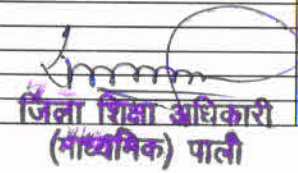 जिला शिक्षा अधिकारी
(माध्यमिक) पाली